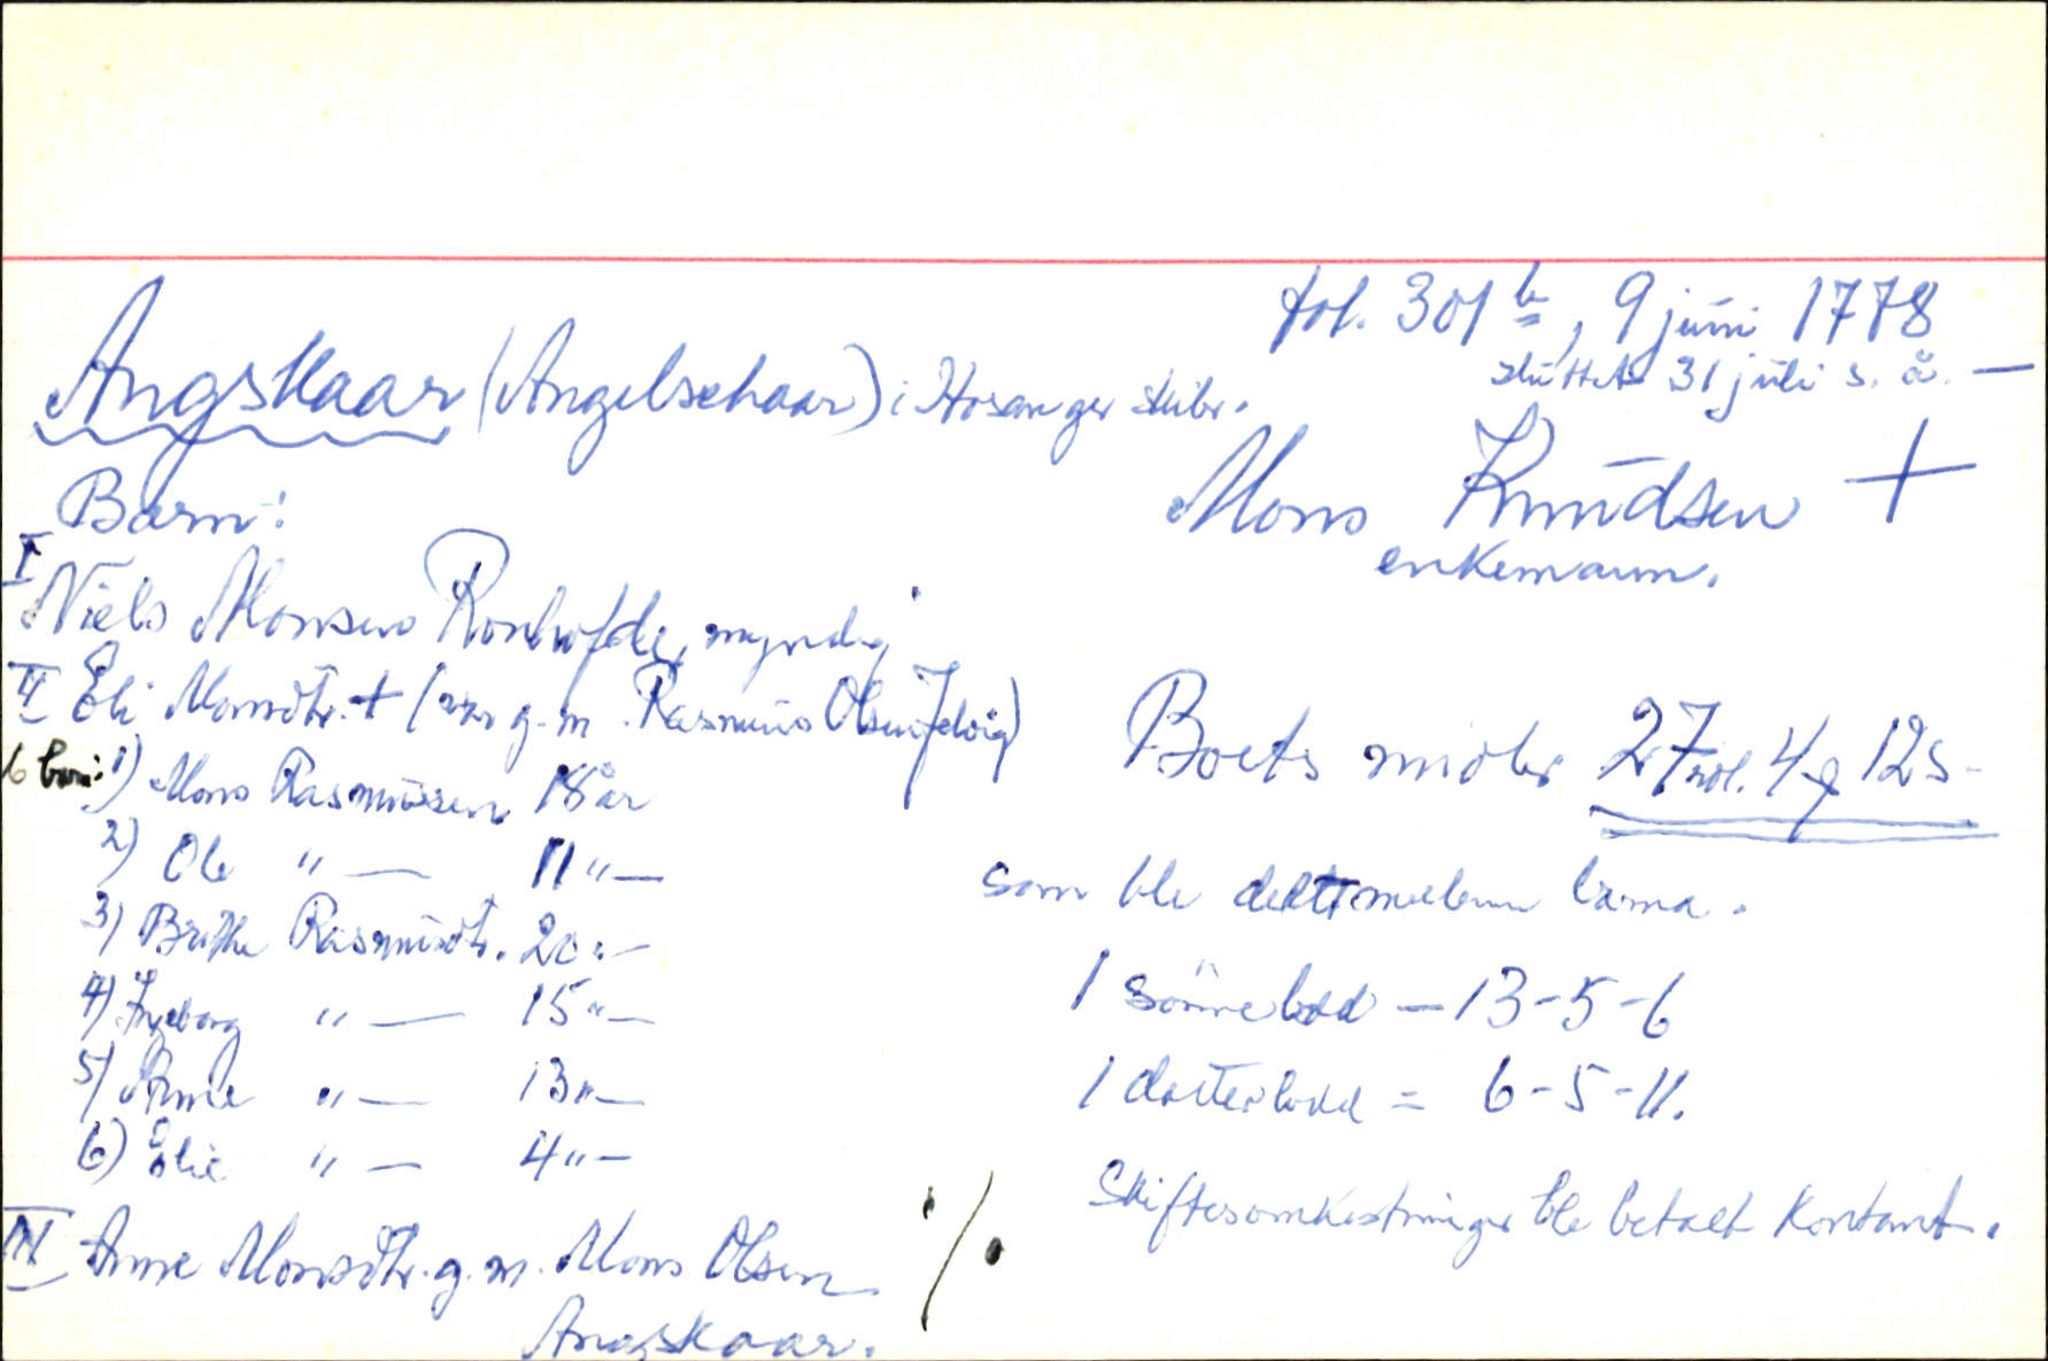 fol. 301 b, 9 juni 1778
sluttet 31 juli s. å. —
Angskaar (Angelschaar) i Hosanger skibr.
Mons Knudsen +
enkemann.
Barn:
I Niels Monsen Ronhofde, myndig
II Eli Monsdtr. + (var g. m. Rasmus Olsen Felvig)
6 barn: 1) Mons Rasmussen 18 år
2) Ole " — 11 " —
3) Brithe Rasmusdtr. 20 " —
4) Ingeborg " — 15 " —
5) Anne " — 13 " —
6) Elie " — 4 " —
III Anne Monsdtr. g. m. Mons Olsen
Angskaar.
Boets midler 27 rdl. 4 12 s -
som ble delt mellem barna.
1 sönnelodd — 13 - 5 - 6
1 datterlodd = 6 - 5 - 11.
Skiftesomkostninger ble betalt kontant.
./.